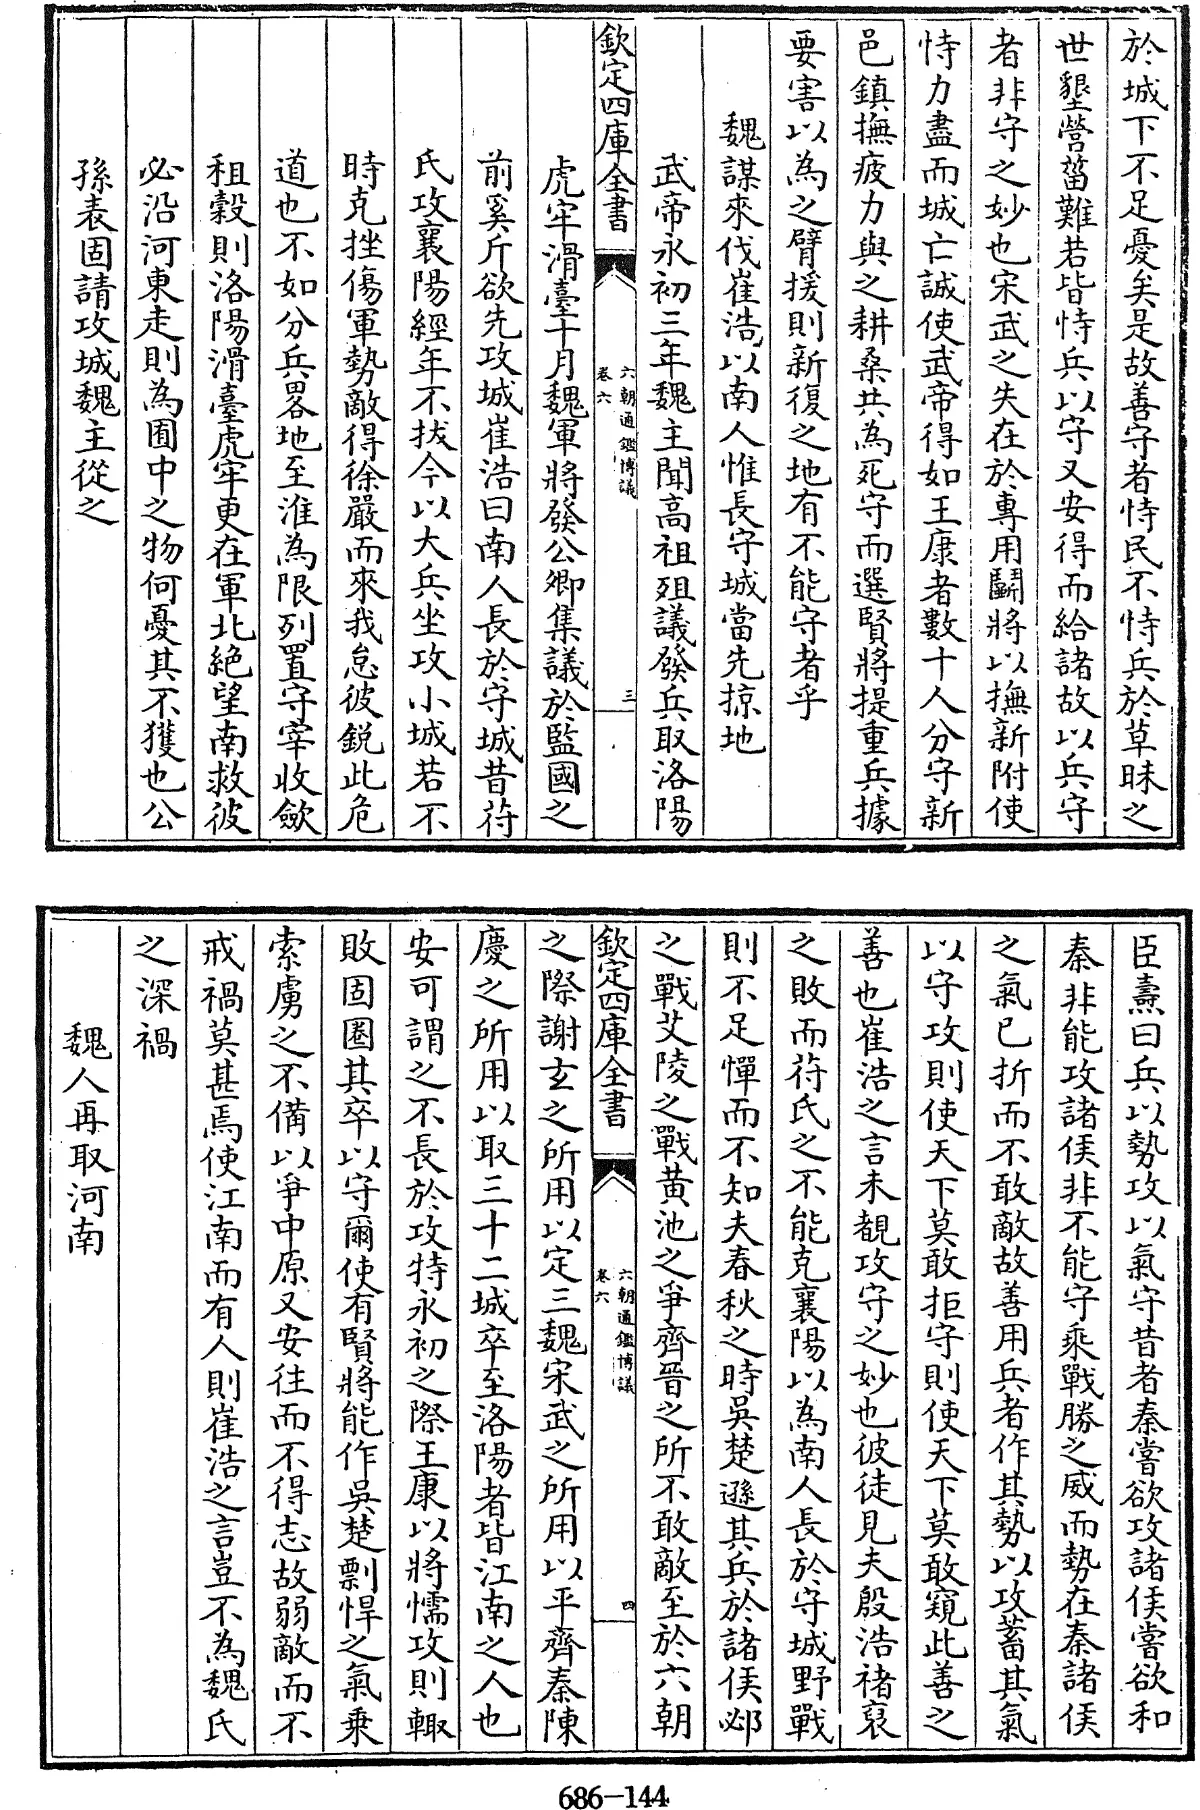 於城下不足憂矣是故善守者恃民不恃兵於草昧之
世墾營菑難若皆恃兵以守又安得而給諸故以兵守
者非守之妙也宋武之失在於專用鬭將以撫新附使
恃力盡而城亡誠使武帝得如王康者數十人分守新
邑鎮撫疲力與之耕桑共為死守而選賢將提重兵據
要害以為之臂援則新復之地有不能守者乎
魏謀來伐崔浩以南人惟長守城當先掠地
武帝永初三年魏主聞高祖殂議發兵取洛陽
欽定四庫全書
六朝通鑑博議
卷六
三
虎牢滑臺十月魏軍將發公卿集議於監國之
前奚斤欲先攻城崔浩曰南人長於守城昔苻
氏攻襄陽經年不拔今以大兵坐攻小城若不
時克挫傷軍勢敵得徐嚴而來我怠彼銳此危
道也不如分兵畧地至淮為限列置守宰收斂
租穀則洛陽滑臺虎牢更在軍北絕望南救彼
必沿河東走則為囿中之物何憂其不獲也公
孫表固請攻城魏主從之
臣燾曰兵以勢攻以氣守昔者秦嘗欲攻諸侯嘗欲和
秦非能攻諸侯非不能守乘戰勝之威而勢在秦諸侯
之氣已折而不敢敵故善用兵者作其勢以攻蓄其氣
以守攻則使天下莫敢拒守則使天下莫敢窺此善之
善也崔浩之言未覩攻守之妙也彼徒見夫殷浩褚裒
之敗而苻氏之不能克襄陽以為南人長於守城野戰
則不足憚而不知夫春秋之時吳楚遜其兵於諸侯邲
之戰艾陵之戰黃池之爭齊晉之所不敢敵至於六朝
欽定四庫全書
六朝通鑑博議
卷六
四
之際謝玄之所用以定三魏宋武之所用以平齊秦陳
慶之所用以取三十二城卒至洛陽者皆江南之人也
安可謂之不長於攻特永初之際王康以將懦攻則輙
敗固圈其卒以守爾使有賢將能作吳楚剽悍之氣乗
索虜之不備以爭中原又安往而不得志故弱敵而不
戒禍莫甚焉使江南而有人則崔浩之言豈不為魏氏
之深禍
魏人再取河南
686-144